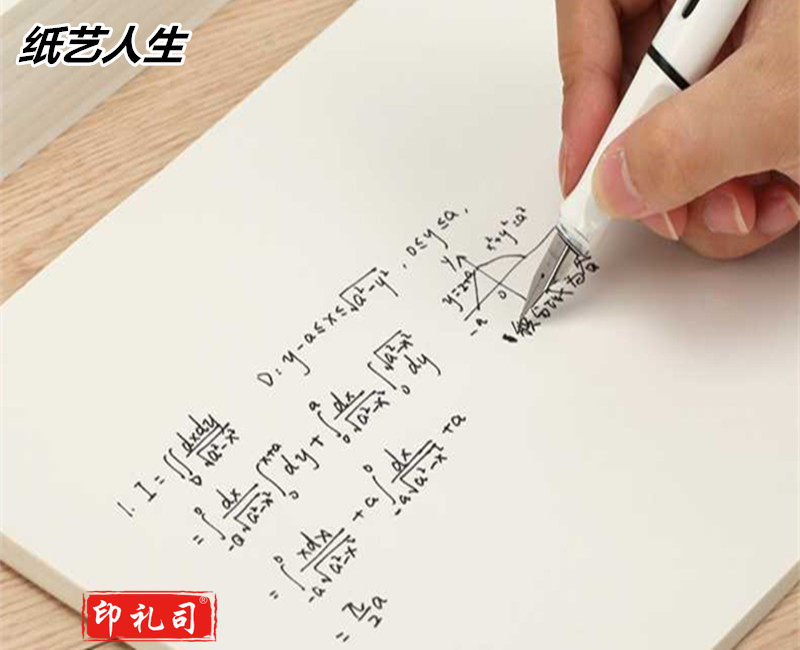 纸艺人生
D: y-a≤x≤√a²-y², 0≤y≤a,
x²+y²=a²
y
y=x+a
-a
0
1. I = ∬_D dxdy/√a²-x²
= ∫_{-a}^{0} dx/√a²-x² ∫_{0}^{x+a} dy + ∫_{0}^{a} dx/√a²-x² ∫_{0}^{√a²-x²} dy
= ∫_{-a}^{0} xdx/√a²-x² + a ∫_{-a}^{0} dx/√a²-x² + a
= π/2 a
印礼司®